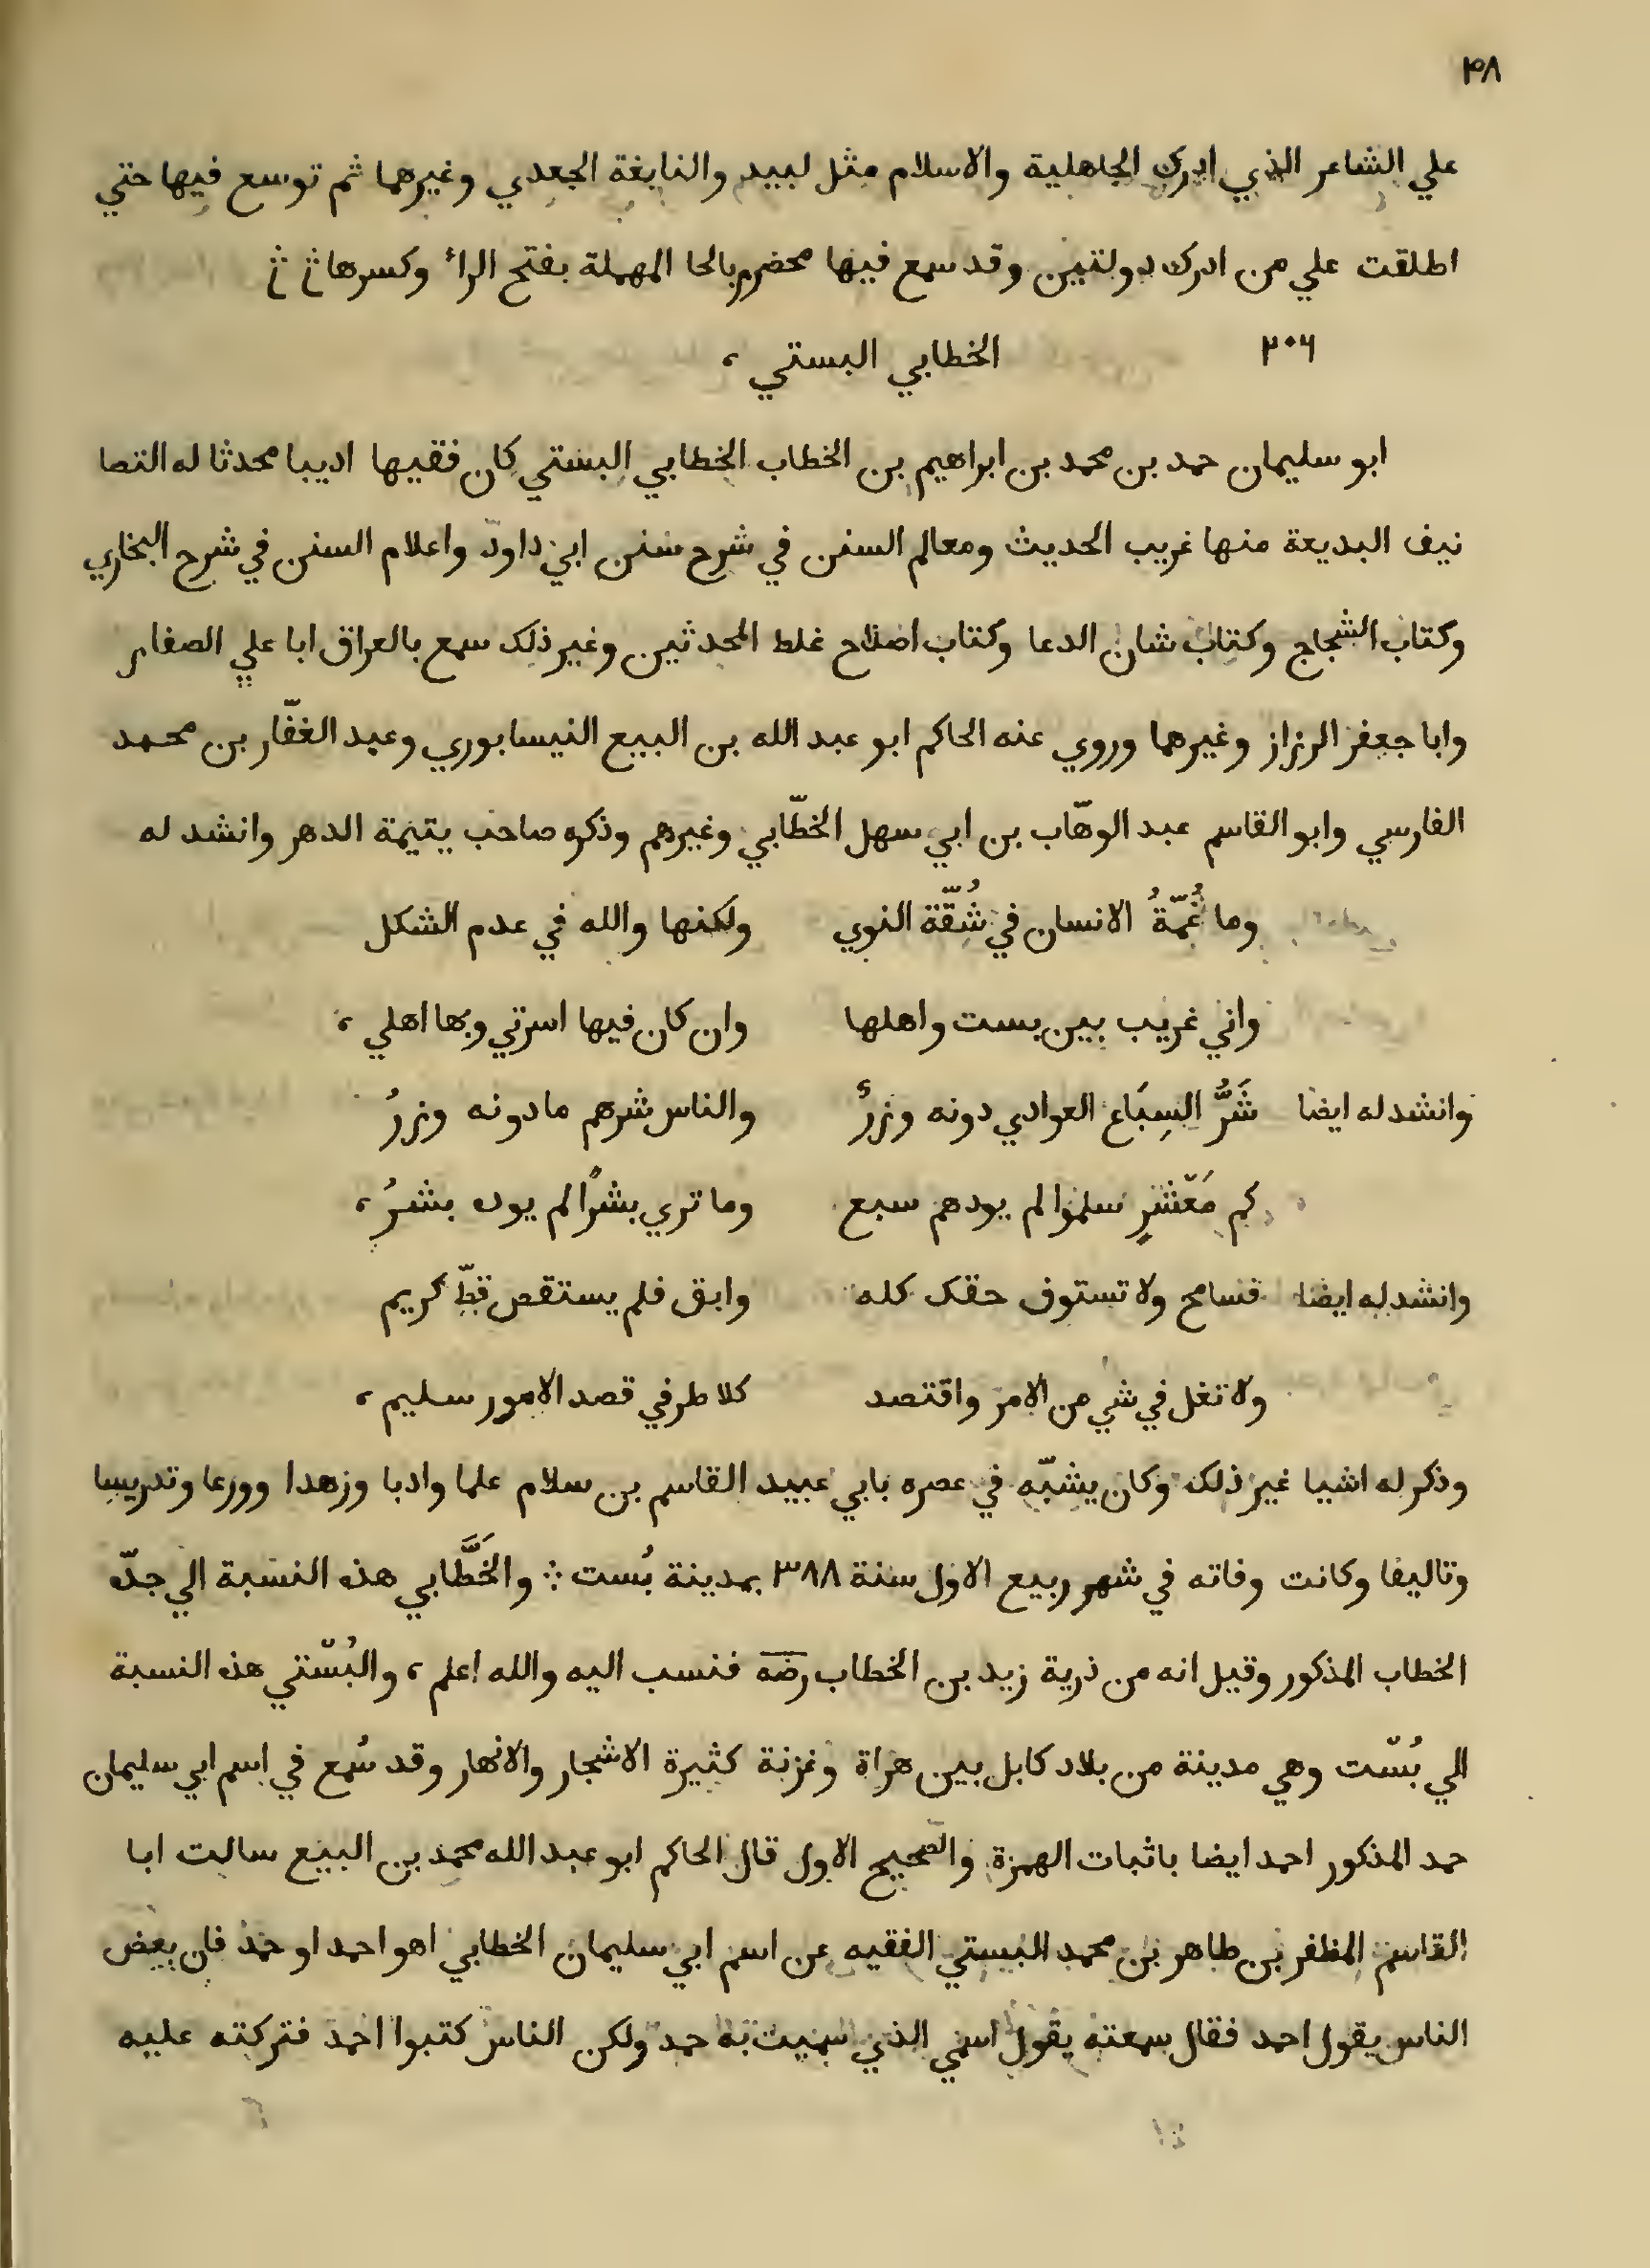 ٣٨
علي الشاعر الذي ادرك الجاهلية والاسلام مثل لبيد والنابغة الجعدي وغيرهما ثم توسع فيها حتي
اطلقت علي من ادرك دولتين وقد سمع فيها محضرم بالحا المهملة بفتح الراء وكسرها
٢٠٦ الخطابي البستي ،
ابو سليمان حمد بن محمد بن ابراهيم بن الخطاب الخطابي البستي كان فقيها اديبا محدثا له التصا
نيف البديعة منها غريب الحديث ومعالم السنن في شرح سنن ابي داود واعلام السنن في شرح البخاري
وكتاب الشجاج وكتاب شان الدعا وكتاب اصلاح غلط المحدثين وغير ذلك سمع بالعراق ابا علي الصفار
وابا جعفر الرزاز وغيرهما وروي عنه الحاكم ابو عبد الله بن البيع النيسابوري وعبد الغفّار بن محمد
الفارسي وابو القاسم عبد الوهّاب بن ابي سهل الخطّابي وغيرهم وذكره صاحب يتيمة الدهر وانشد له
وما غُمّةُ الانسان في شُقّة النوي ولكنها والله في عدم الشكل
واني غريب بين بست واهلها وان كان فيها اسرتي وبها اهلي ،
وانشد له ايضا شَرُّ السِبَاع العوادي دونه وزرُ والناس شرهم ما دونه وزرُ
كم مَعْشرٍ سلموا لم يودهم سبع وما تري بشرًا لم يوده بشرُ ،
وانشد له ايضا فسامح ولا تستوف حقك كله وابق فلم يستقص قطّ كريم
ولا تغل في شي من الامر واقتصد كلا طرفي قصد الامور سليم ،
وذكر له اشيا غير ذلك وكان يشبّه في عصره بابي عبيد القاسم بن سلام علما وادبا وزهدا وورعا وتدريسا
وتاليفا وكانت وفاته في شهر ربيع الاول سنة ٣٨٨ بمدينة بُست ؞ والخَطَّابي هذه النسبة الي جدّه
الخطاب المذكور وقيل انه من ذرية زيد بن الخطاب رضه فنسب اليه والله اعلم ، والبُسْتي هذه النسبة
الي بُسْت وهي مدينة من بلاد كابل بين هراة وغزنة كثيرة الاشجار والانهار وقد سُمع في اسم ابي سليمان
حمد المذكور احمد ايضا باثبات الهمزة والصحيح الاول قال الحاكم ابو عبد الله محمد بن البيع سالت ابا
القاسم المظفر بن طاهر بن محمد البستي الفقيه عن اسم ابي سليمان الخطابي اهو احمد او حمد فان بعض
الناس يقول احمد فقال سمعته يقول اسمي الذي سميت به حمد ولكن الناس كتبوا احمد فتركته عليه